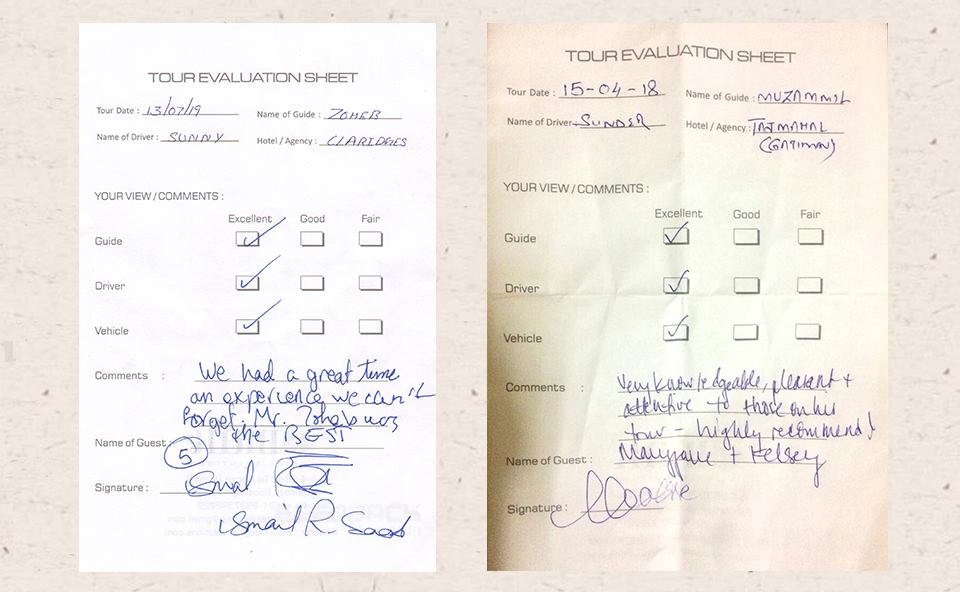 TOUR EVALUATION SHEET
Tour Date : 13/07/19
Name of Guide : ZOHEB
Name of Driver : SUNNY
Hotel / Agency : CLARIDGES
YOUR VIEW / COMMENTS :
Excellent Good Fair
Guide
Driver
Vehicle
Comments : We had a great time
an experience we can't
forget. Mr. Zoheb was
the BEST
Name of Guest :
5
Signature :
ismail R. Saad
TOUR EVALUATION SHEET
Tour Date : 15-04-18
Name of Guide : MUZAMMIL
Name of Driver : SUNDER
Hotel / Agency : TAJMAHAL
(GATIMAN)
YOUR VIEW / COMMENTS :
Excellent Good Fair
Guide
Driver
Vehicle
Comments : Very knowledgeable, pleasant +
attentive to those on his
tour - highly recommend!
Name of Guest : Maryjane + Kelsey
Signature :